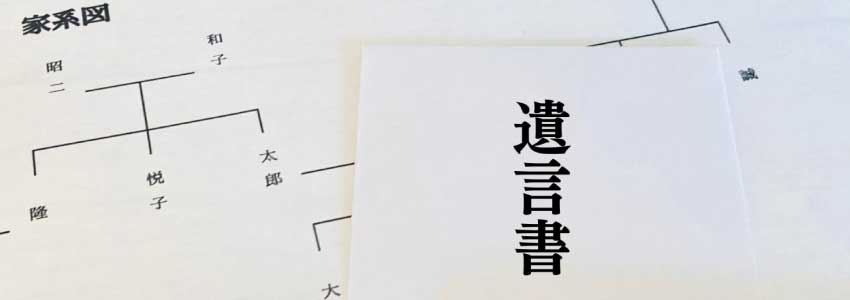 家系図
和子
昭二
太郎
悦子
隆
大
遺言書